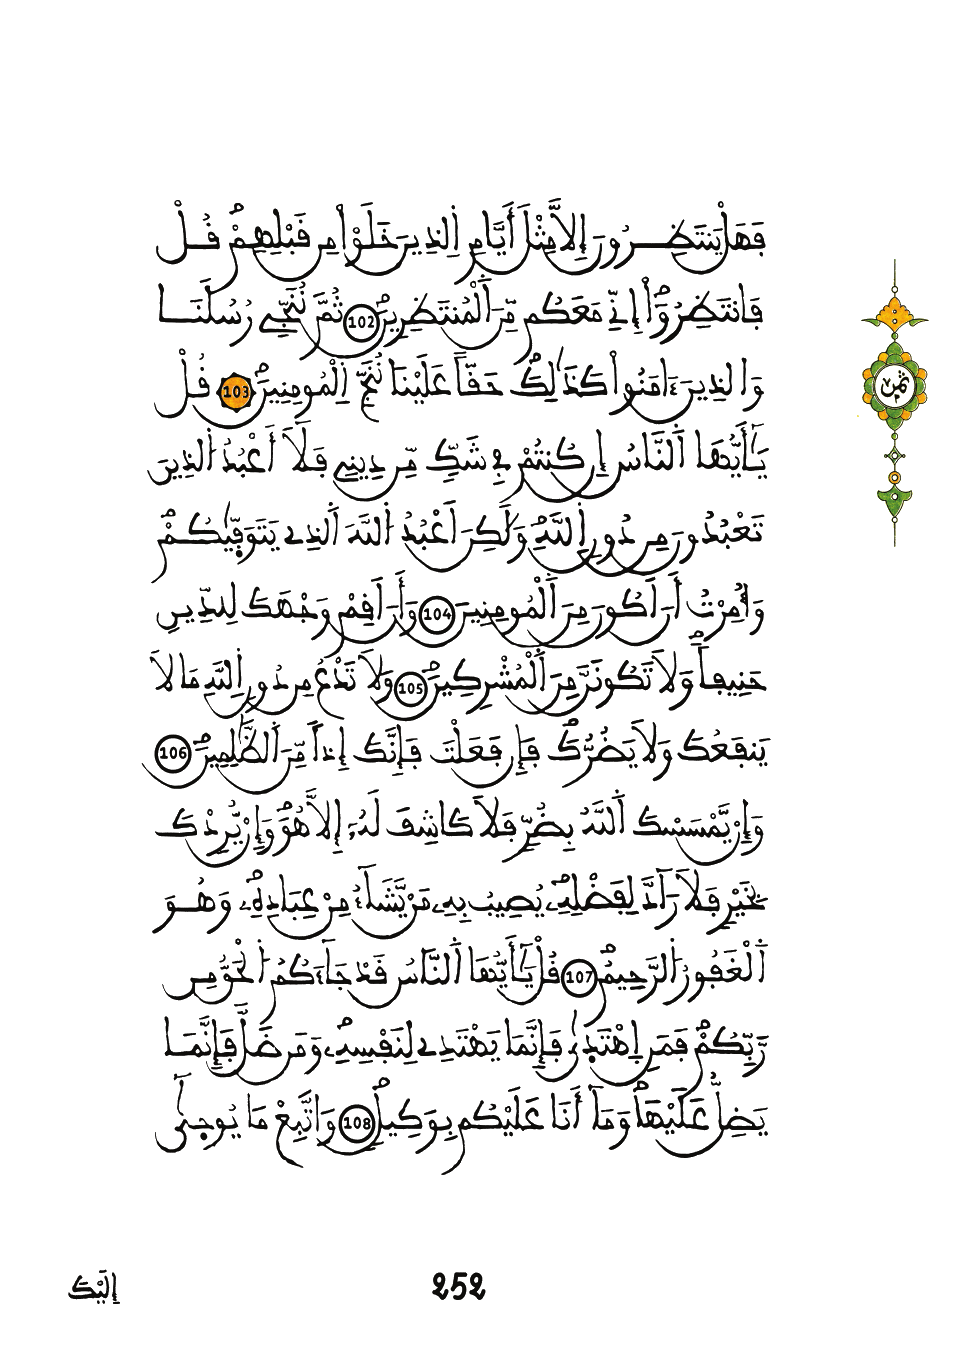 فَهَلْ يَنتَظِرُونَ إِلَّا مِثْلَ أَيَّامِ اِلذِينَ خَلَوْاْ مِن قَبْلِهِمْ قُلْ
فَانتَظِرُوٓاْ إِنِّي مَعَكُم مِّنَ اَلْمُنتَظِرِينَ 102 ثُمَّ نُنَجِّي رُسُلَنَا
وَالذِينَ ءَامَنُواْ كَذَٰلِكَ حَقّاً عَلَيْنَا نُنَجِّ اِلْمُومِنِينَ 103 قُلْ
يَٰٓأَيُّهَا اَلنَّاسُ إِن كُنتُمْ فِي شَكٍّ مِّن دِينِي فَلَآ أَعْبُدُ اُلذِينَ
تَعْبُدُونَ مِن دُونِ اِللَّهِ وَلَٰكِنَ اَعْبُدُ اُللَّهَ اَلذِي يَتَوَفَّيٰكُمْ
وَأُمِرْتُ أَنَ اَكُونَ مِنَ اَلْمُومِنِينَ 104 وَأَنَ اَقِمْ وَجْهَكَ لِلدِّينِ
حَنِيفاً وَلَا تَكُونَنَّ مِنَ اَلْمُشْرِكِينَ 105 وَلَا تَدْعُ مِن دُونِ اِللَّهِ مَا لَا
يَنفَعُكَ وَلَا يَضُرُّكَ فَإِن فَعَلْتَ فَإِنَّكَ إِذاً مِّنَ اَلظَّٰلِمِينَ 106
وَإِنْ يَّمْسَسْكَ اَللَّهُ بِضُرٍّ فَلَا كَاشِفَ لَهُۥٓ إِلَّا هُوَ وَإِنْ يُّرِدْكَ
بِخَيْرٍ فَلَا رَآدَّ لِفَضْلِهِۦ يُصِيبُ بِهِۦ مَنْ يَّشَآءُ مِنْ عِبَادِهِۦ وَهُوَ
اَلْغَفُورُ اُلرَّحِيمُ 107 قُلْ يَٰٓأَيُّهَا اَلنَّاسُ قَدْ جَآءَكُمُ اُلْحَقُّ مِن
رَّبِّكُمْ فَمَنِ اِهْتَدَىٰ فَإِنَّمَا يَهْتَدِي لِنَفْسِهِۦ وَمَن ضَلَّ فَإِنَّمَا
يَضِلُّ عَلَيْهَا وَمَآ أَنَا عَلَيْكُم بِوَكِيلٍ 108 وَاتَّبِعْ مَا يُوحَىٰٓ
ثمن
252
إِلَيْكَ